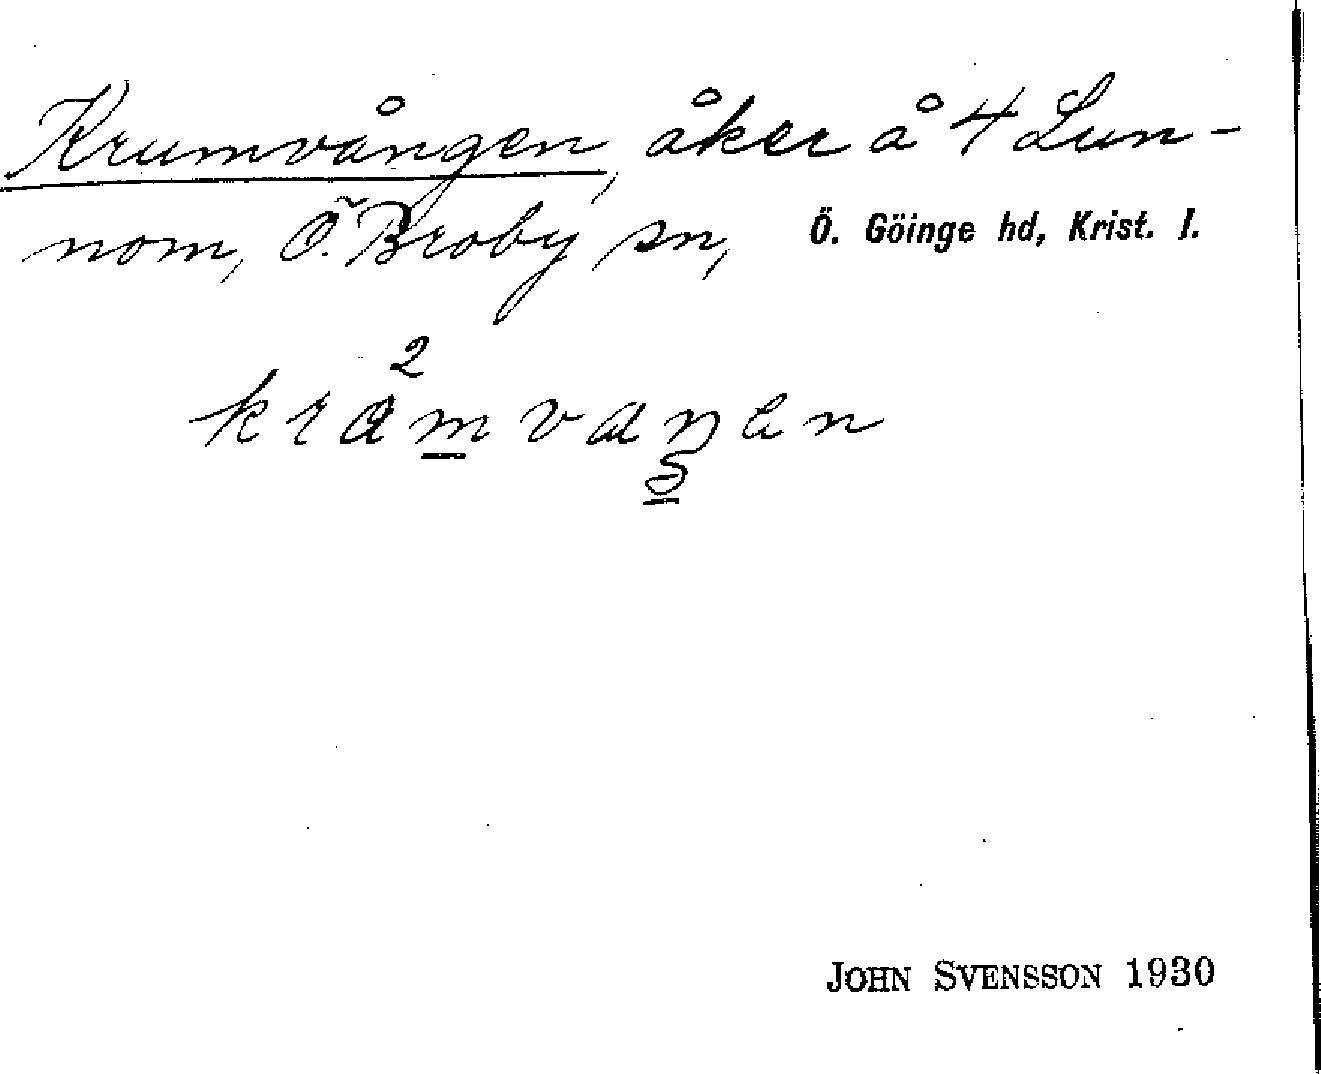 Krumvången, åker å 4 Lun-
nom, Ö. Broby sn, Ö. Göinge hd, Krist. l.
JOHN SVENSSON 1930